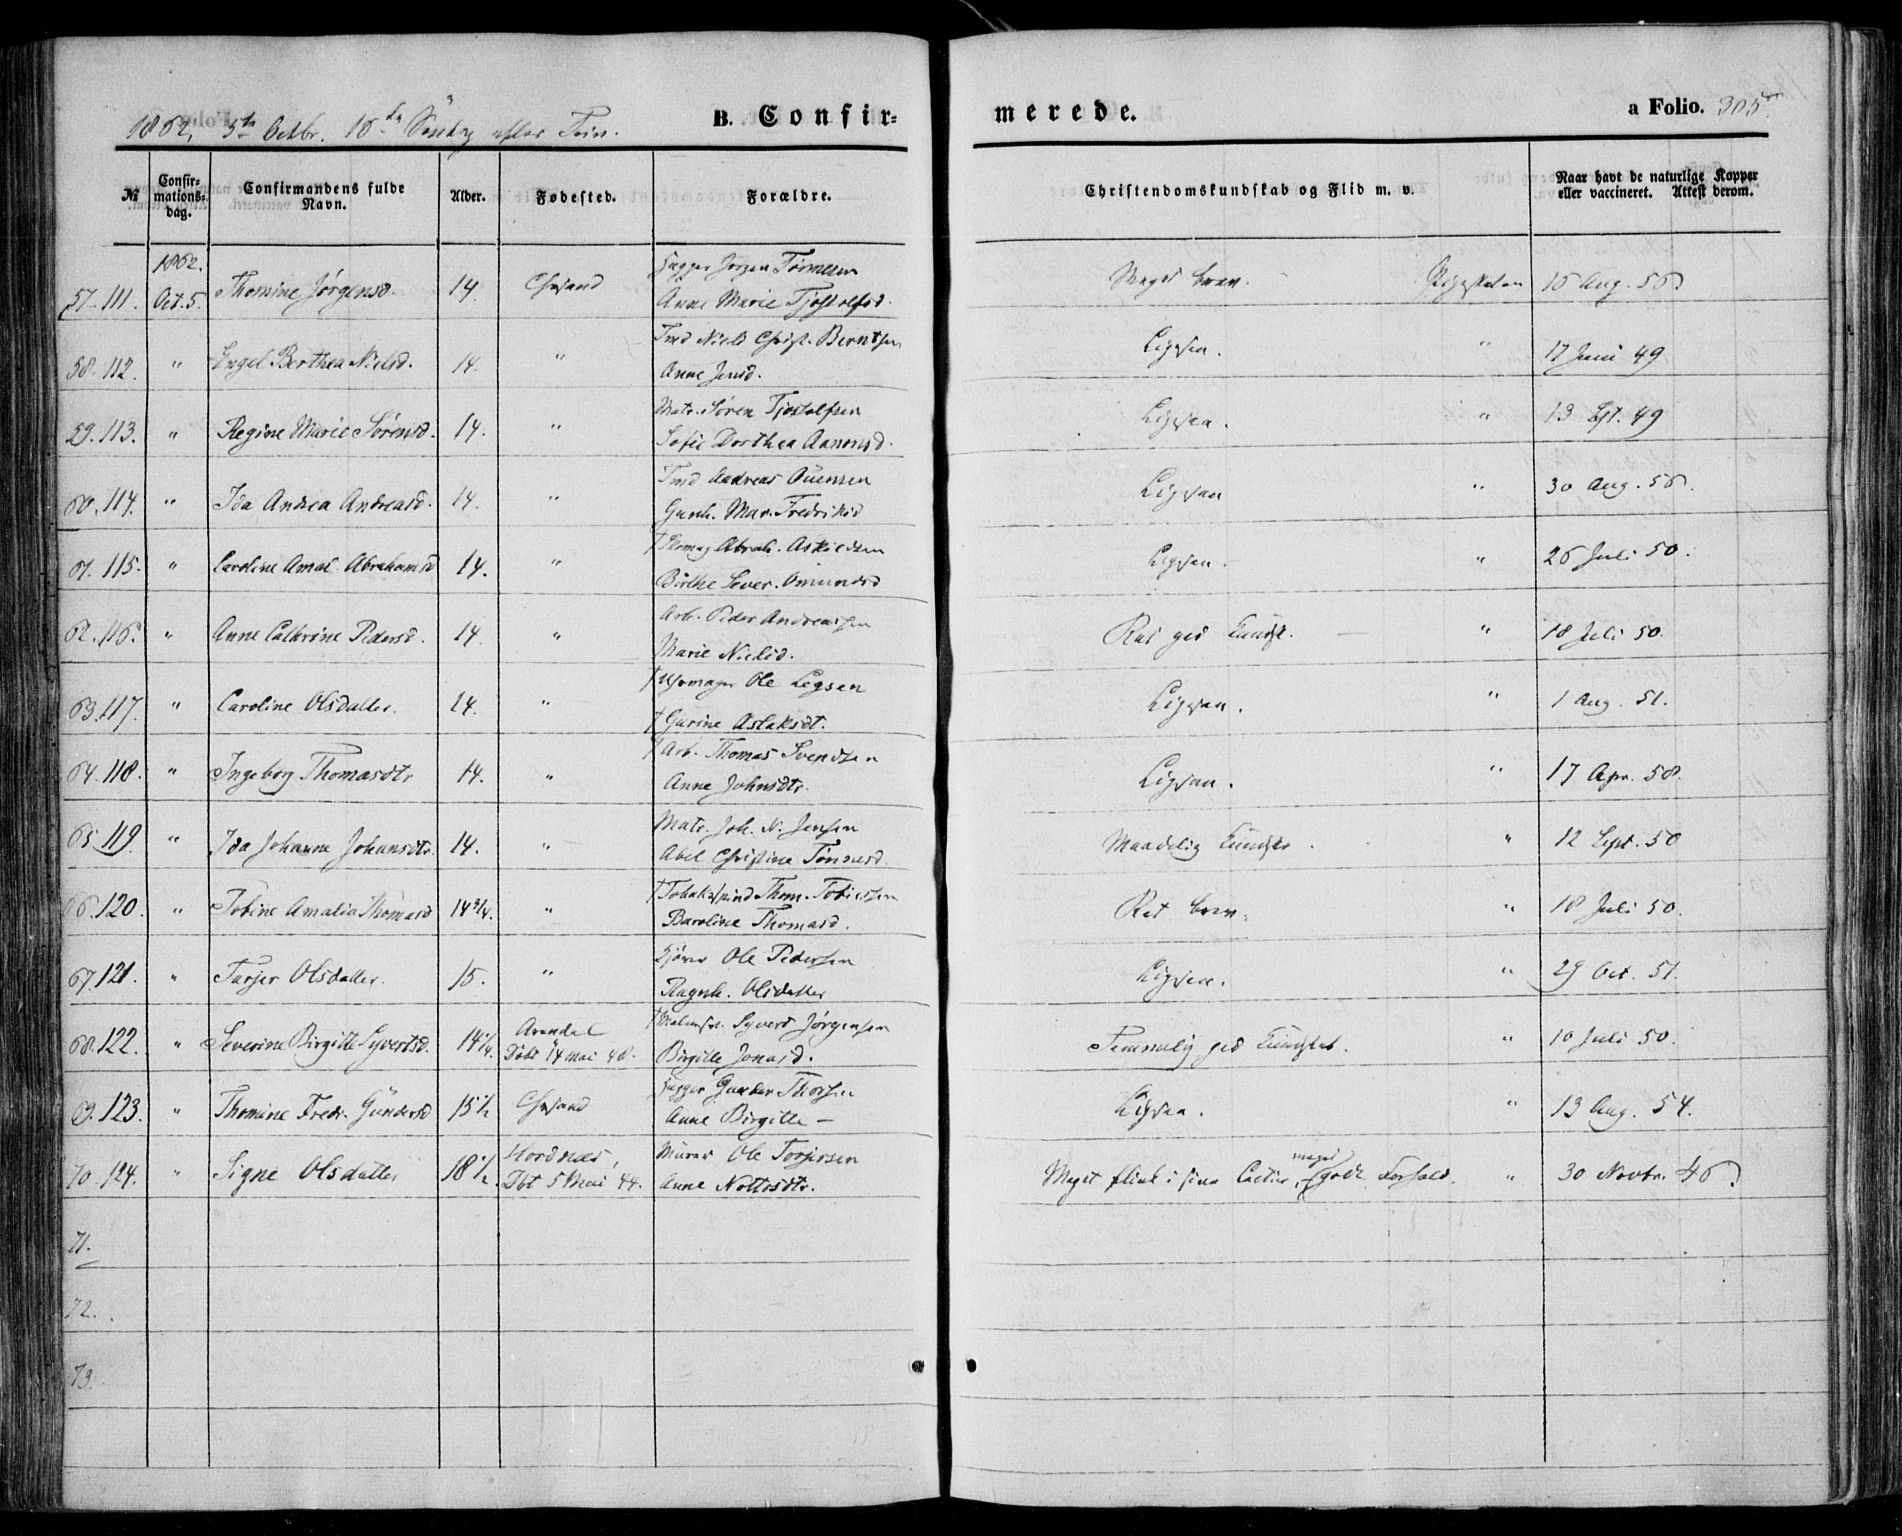 1862, 5te Octbr. 16de Søndag efter Trin.
B. Confir-
merede.
a Folio. 305
№
Confir-
mations-
dag.
Confirmandens fulde
Navn.
Alder.
Fødested.
Forældre.
Christendomskundskab og Flid m. v.
Naar havt de naturlige Kopper
eller vaccineret. Attest derom.
1862.
57. 111. Oct. 5. Thomine Jørgensd. 14. Chrsand
Anne Marie Tjostolfsd.
Meget brav. Pigeskolen 16 Aug. 56
58. 112. " Engel Berthea Nielsd. 14. "
Tmd Niels Christ. Berntsen
Anne Jensd.
Ligesaa. " 17 Juni 49
59. 113. " Regine Marie Sørensd. 14. "
Matr. Søren Tjostolfsen
Sofie Dorthea Aanensd.
Ligesaa. " 13 Spt. 49
60. 114. " Ida Andrea Andreasd. 14. "
Tmd Andreas
Gunh. Mar. Fredriksd
Ligesaa " 30 Aug. 56.
61. 115. " Caroline Amal. Abrahamsd 14. "
Abrah. Askildsen
Birthe Sever. Omundsd
Ligesaa. " 26 Juli 50.
62. 116. " Anne Cathrine Pedersd. 14. "
Arb. Peder Andreassen
Marie Nielsd.
Ret god Kundsk. " 18 Juli 50.
63. 117. " Caroline Olsdatter. 14. "
† Uhrmager Ole
† Gurine Aslaksdt.
Ligesaa. " 1 Aug. 51.
64. 118. " Ingeborg Thomasdtr 14. "
† Arb. Thomas Svendsen
Anne Johnsdtr.
Ligesaa. " 17 Apr. 58.
65. 119 " Ida Johanne Johansdtr. 14. "
Matr. Joh. N. Jensen
Abel Christine Tønnesd.
Maadelig Kundsk. " 12 Sept. 50
66. 120. " Tobine Amalia Thomasd 14 3/4. "
† Tobaksspind Thom. Tobiassen
Baroline Thomasd.
Ret brav. " 18 Juli 50.
67. 121. " Tarjer Olsdatter. 15. "
Ole Pedersen
Ragnh. Olsdatter
Ligesaa. " 29 Oct. 51.
68. 122. " Severine Birgitte Syvertsd. 14 1/4. Arendal
Døbt 14 Mai 48.
Syvert Jørgensen
Birgitte Jonasd.
Temmelig god Kundskab. " 10 Juli 50.
69. 123. " Thomine Fredr. Gundersd 15 1/2 Chrsand
Gunder Thorsen
Anne Birgitte —
Ligesaa. " 13 Aug. 54.
70. 124. " Signe Olsdatter 18 1/2 Hordnæs,
Dbt 5 Mai 44.
Murer Ole Torjersen
Anne Nottosdtr.
Meget flink i sine Lectier, meget godt Forhold. " 30 Novbr. 46
71.
72.
73.